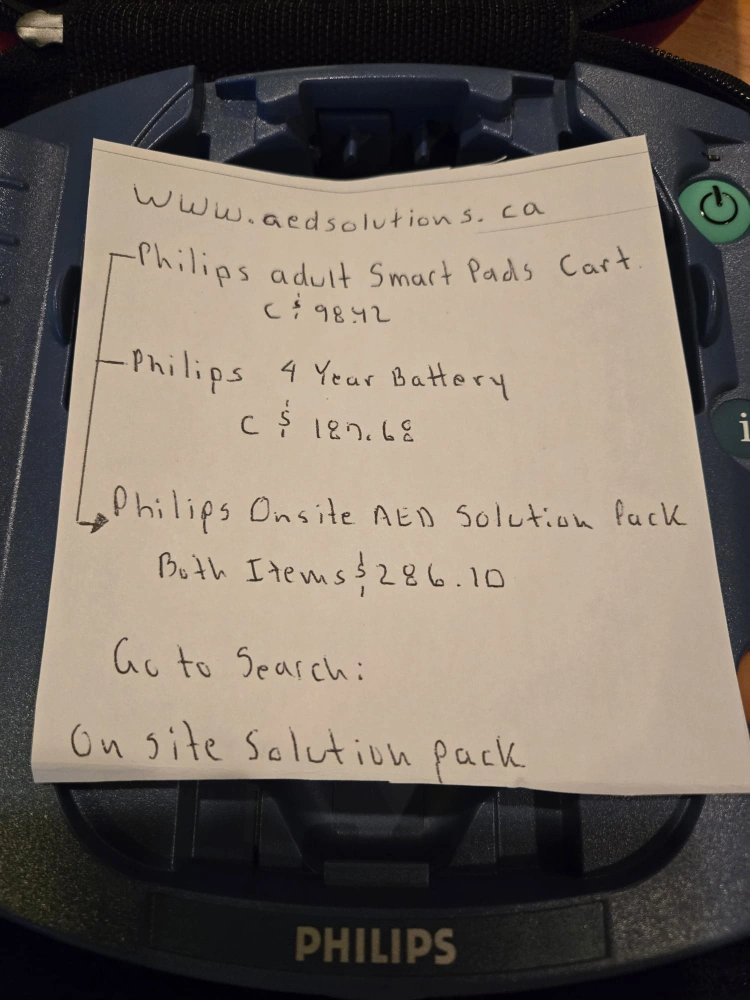 www.aedsolutions.ca
Philips adult Smart Pads Cart.
C $ 98.42
Philips 4 Year Battery
C $ 187.68
Philips Onsite AED Solution Pack
Both Items $286.10
Go to Search:
On site Solution pack
i
PHILIPS